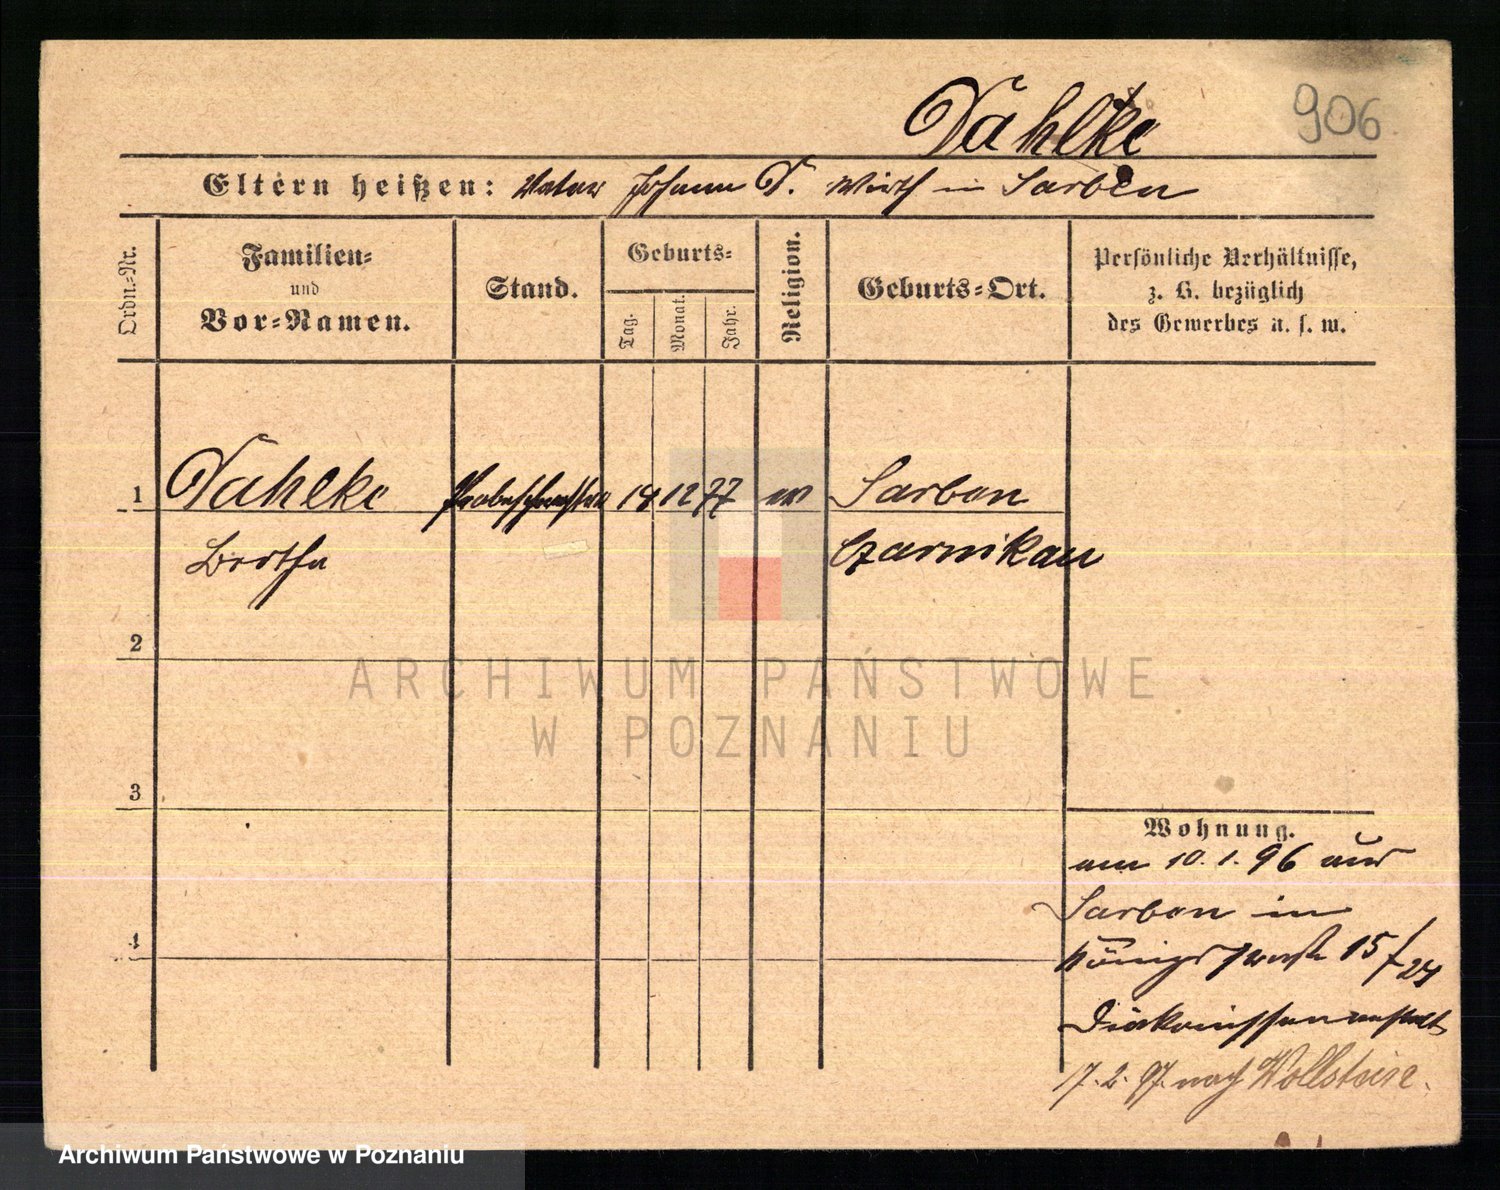 Dahlke
906
Eltern heißen: Vater Johann D. Wirth in Sarben
Ordn.-Nr.
Familien-
und
Vor-Namen.
Stand.
Geburts-
Tag.
Monat.
Jahr.
Religion.
Geburts-Ort.
Persönliche Verhältnisse,
z. B. bezüglich
des Gewerbes u. s. w.
1 Dahlke Probeschwester 14 12 77 ev Sarben
Bertha Czarnikau
2
3
4
Wohnung.
am 10. 1. 96 aus
Sarben in
Königsstraße 15/24
Diakonissenanstalt
17. 2. 97. nach Wollstein.
ARCHIWUM PAŃSTWOWE
W POZNANIU
Archiwum Państwowe w Poznaniu